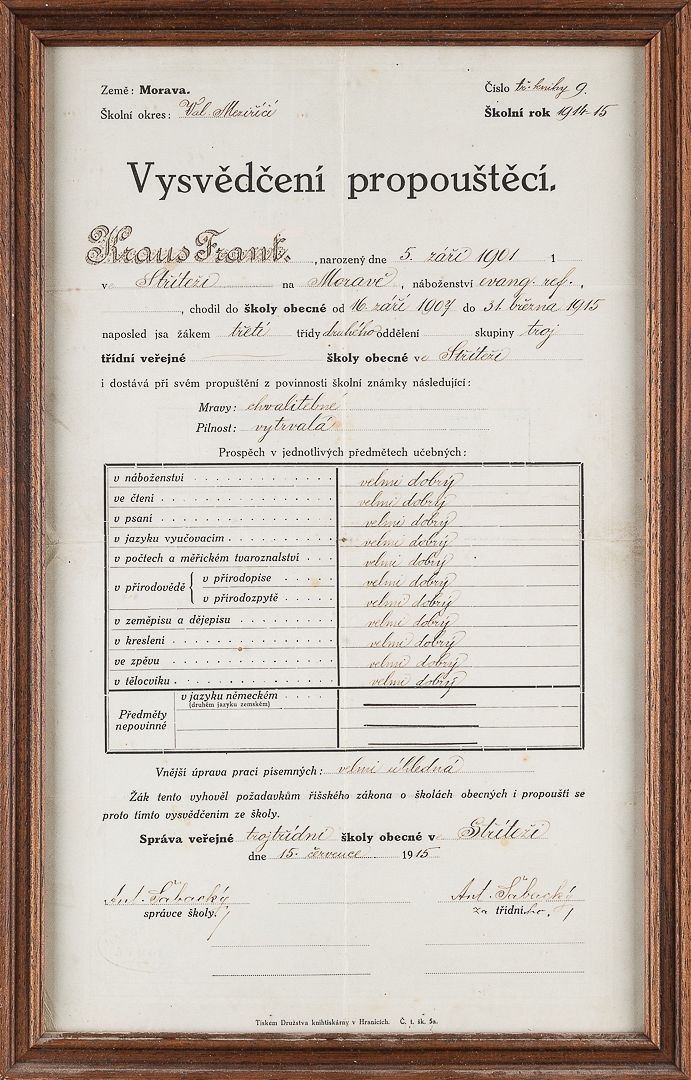 Země: Morava.
Číslo tř. knihy 9.
Školní okres: Val. Meziříčí
Školní rok 1914-15
Vysvědčení propouštěcí.
Kraus Frant. , narozený dne 5. září 1901 1
v Stříteži na Moravě , náboženství evang. ref. ,
, chodil do školy obecné od 16. září 1907 do 31. března 1915
naposled jsa žákem třetí třídy druhého oddělení skupiny troj
třídní veřejné školy obecné ve Stříteži
i dostává při svém propuštění z povinnosti školní známky následující:
Mravy: chvalitebné
Pilnost: vytrvalá
Prospěch v jednotlivých předmětech učebných:
v náboženství velmi dobrý
ve čtení velmi dobrý
v psaní velmi dobrý
v jazyku vyučovacím velmi dobrý
v počtech a měřickém tvaroznalství velmi dobrý
v přírodovědě { v přírodopise velmi dobrý
v přírodozpytě velmi dobrý
v zeměpisu a dějepisu velmi dobrý
v kreslení velmi dobrý
ve zpěvu velmi dobrý
v tělocviku velmi dobrý
Předměty nepovinné
v jazyku německém
(druhém jazyku zemském)
Vnější úprava prací písemných: velmi úhledná
Žák tento vyhověl požadavkům říšského zákona o školách obecných i propouští se
proto tímto vysvědčením ze školy.
Správa veřejné trojtřídní školy obecné v Stříteži
dne 15. července 1915
Ant. Šabacký
Ant. Šabacký
správce školy.
za třídního.
Tiskem Družstva knihtiskárny v Hranicích. Č. t. šk. 5a.